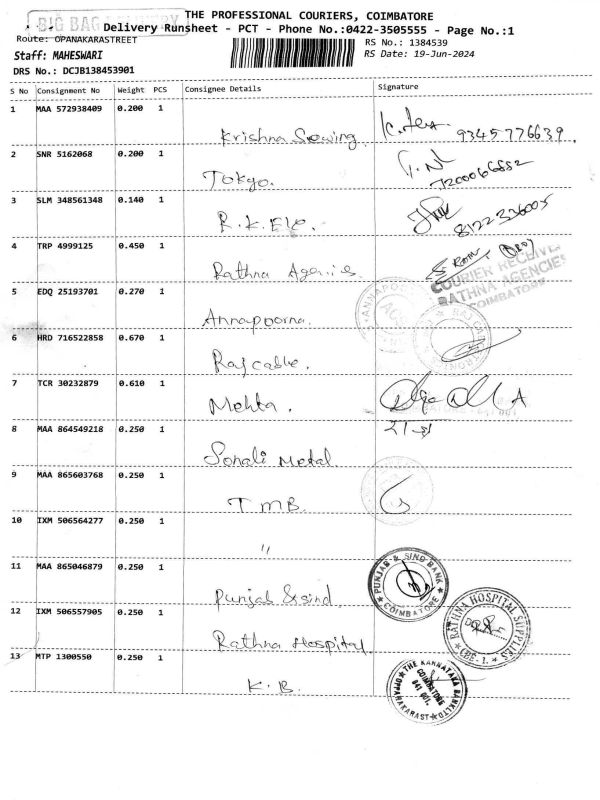 THE PROFESSIONAL COURIERS, COIMBATORE
BIG BAG DELIVERY
Delivery Runsheet - PCT - Phone No.:0422-3505555 - Page No.:1
Route: OPANAKARASTREET
RS No.: 1384539
Staff: MAHESWARI
RS Date: 19-Jun-2024
DRS No.: DCJB138453901
S No Consignment No Weight PCS Consignee Details Signature
1 MAA 572938409 0.200 1
Krishna Sewing. 9345776639.
2 SNR 5162068 0.200 1
Tokyo. 7200066552
3 SLM 348561348 0.140 1
R.K.Ele. 8122336005
4 TRP 4999125 0.450 1
Rathna Agencies
COURIER RECEIVED
RATHNA AGENCIES
COIMBATORE
5 EDQ 25193701 0.270 1
Annapoorna.
6 HRD 716522858 0.670 1
Raj cable.
7 TCR 30232879 0.610 1
Mehta.
8 MAA 864549218 0.250 1
Sonali Metal.
9 MAA 865603768 0.250 1
TMB.
10 IXM 506564277 0.250 1
"
11 MAA 865046879 0.250 1
Punjab & sind.
PUNJAB & SIND BANK
COIMBATORE
12 IXM 506557905 0.250 1
Rathna Hospital
RATHNA HOSPITAL SUPPLIES
CBE - 1.
13 MTP 1300550 0.250 1
K.B.
THE KARNATAKA BANK LTD
COIMBATORE
641 001.